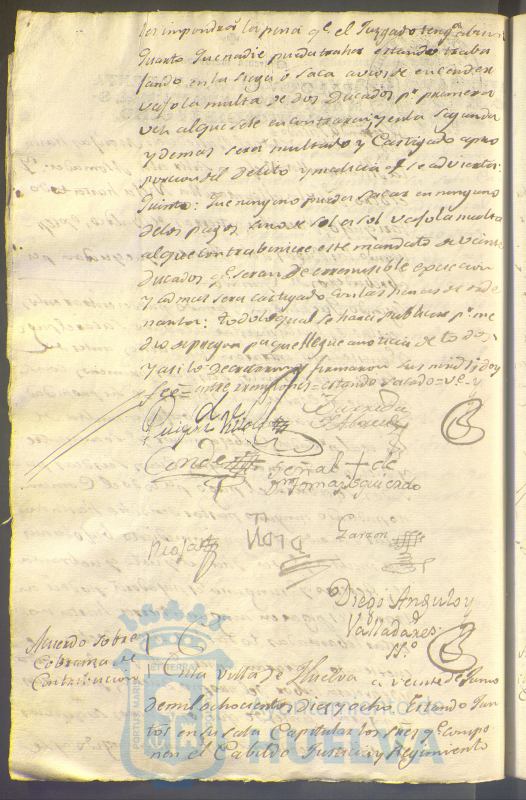 les impondrá la pena qe. el Juzgado tenga
Quarto Que nadie pueda traher estando traba
jando en la siega o saca avios de encender
vajo la multa de dos Ducados pr. primera
vez al que se le encontraren; y en la segunda
y demas sera multado y Castigado apro
porcion del delito y malicia qe. se advierta:
Quinto: Que ninguno pueda sacar en ninguno
de los pagos sino de sol a sol vajo la multa
al que contrabiniere este mandato de veinte
Ducados qe. seran de
y ademas sera castigado con las penas de orde
nanza: todo lo qual se hará publicar pr. me
dio de pregon pa. que llegue a noticia de todos
y asi lo decretaron y firmaron sus mrds doy
fee = entre renglones = estando
Conde
Señal + de
Dn. Tomas Izquierdo
Garzon
Diego Angulo y
Valladares
Acuerdo sobre
Cobranza de
Contribucion
En la Villa de Huelva a veinte de Junio
de mil ochocientos diez y ocho. Estando Jun
tos en su sala Capitular los Sres. qe. compo
nen el Cabildo Justicia y Regimiento
PORTUS MARIS
HUELVA